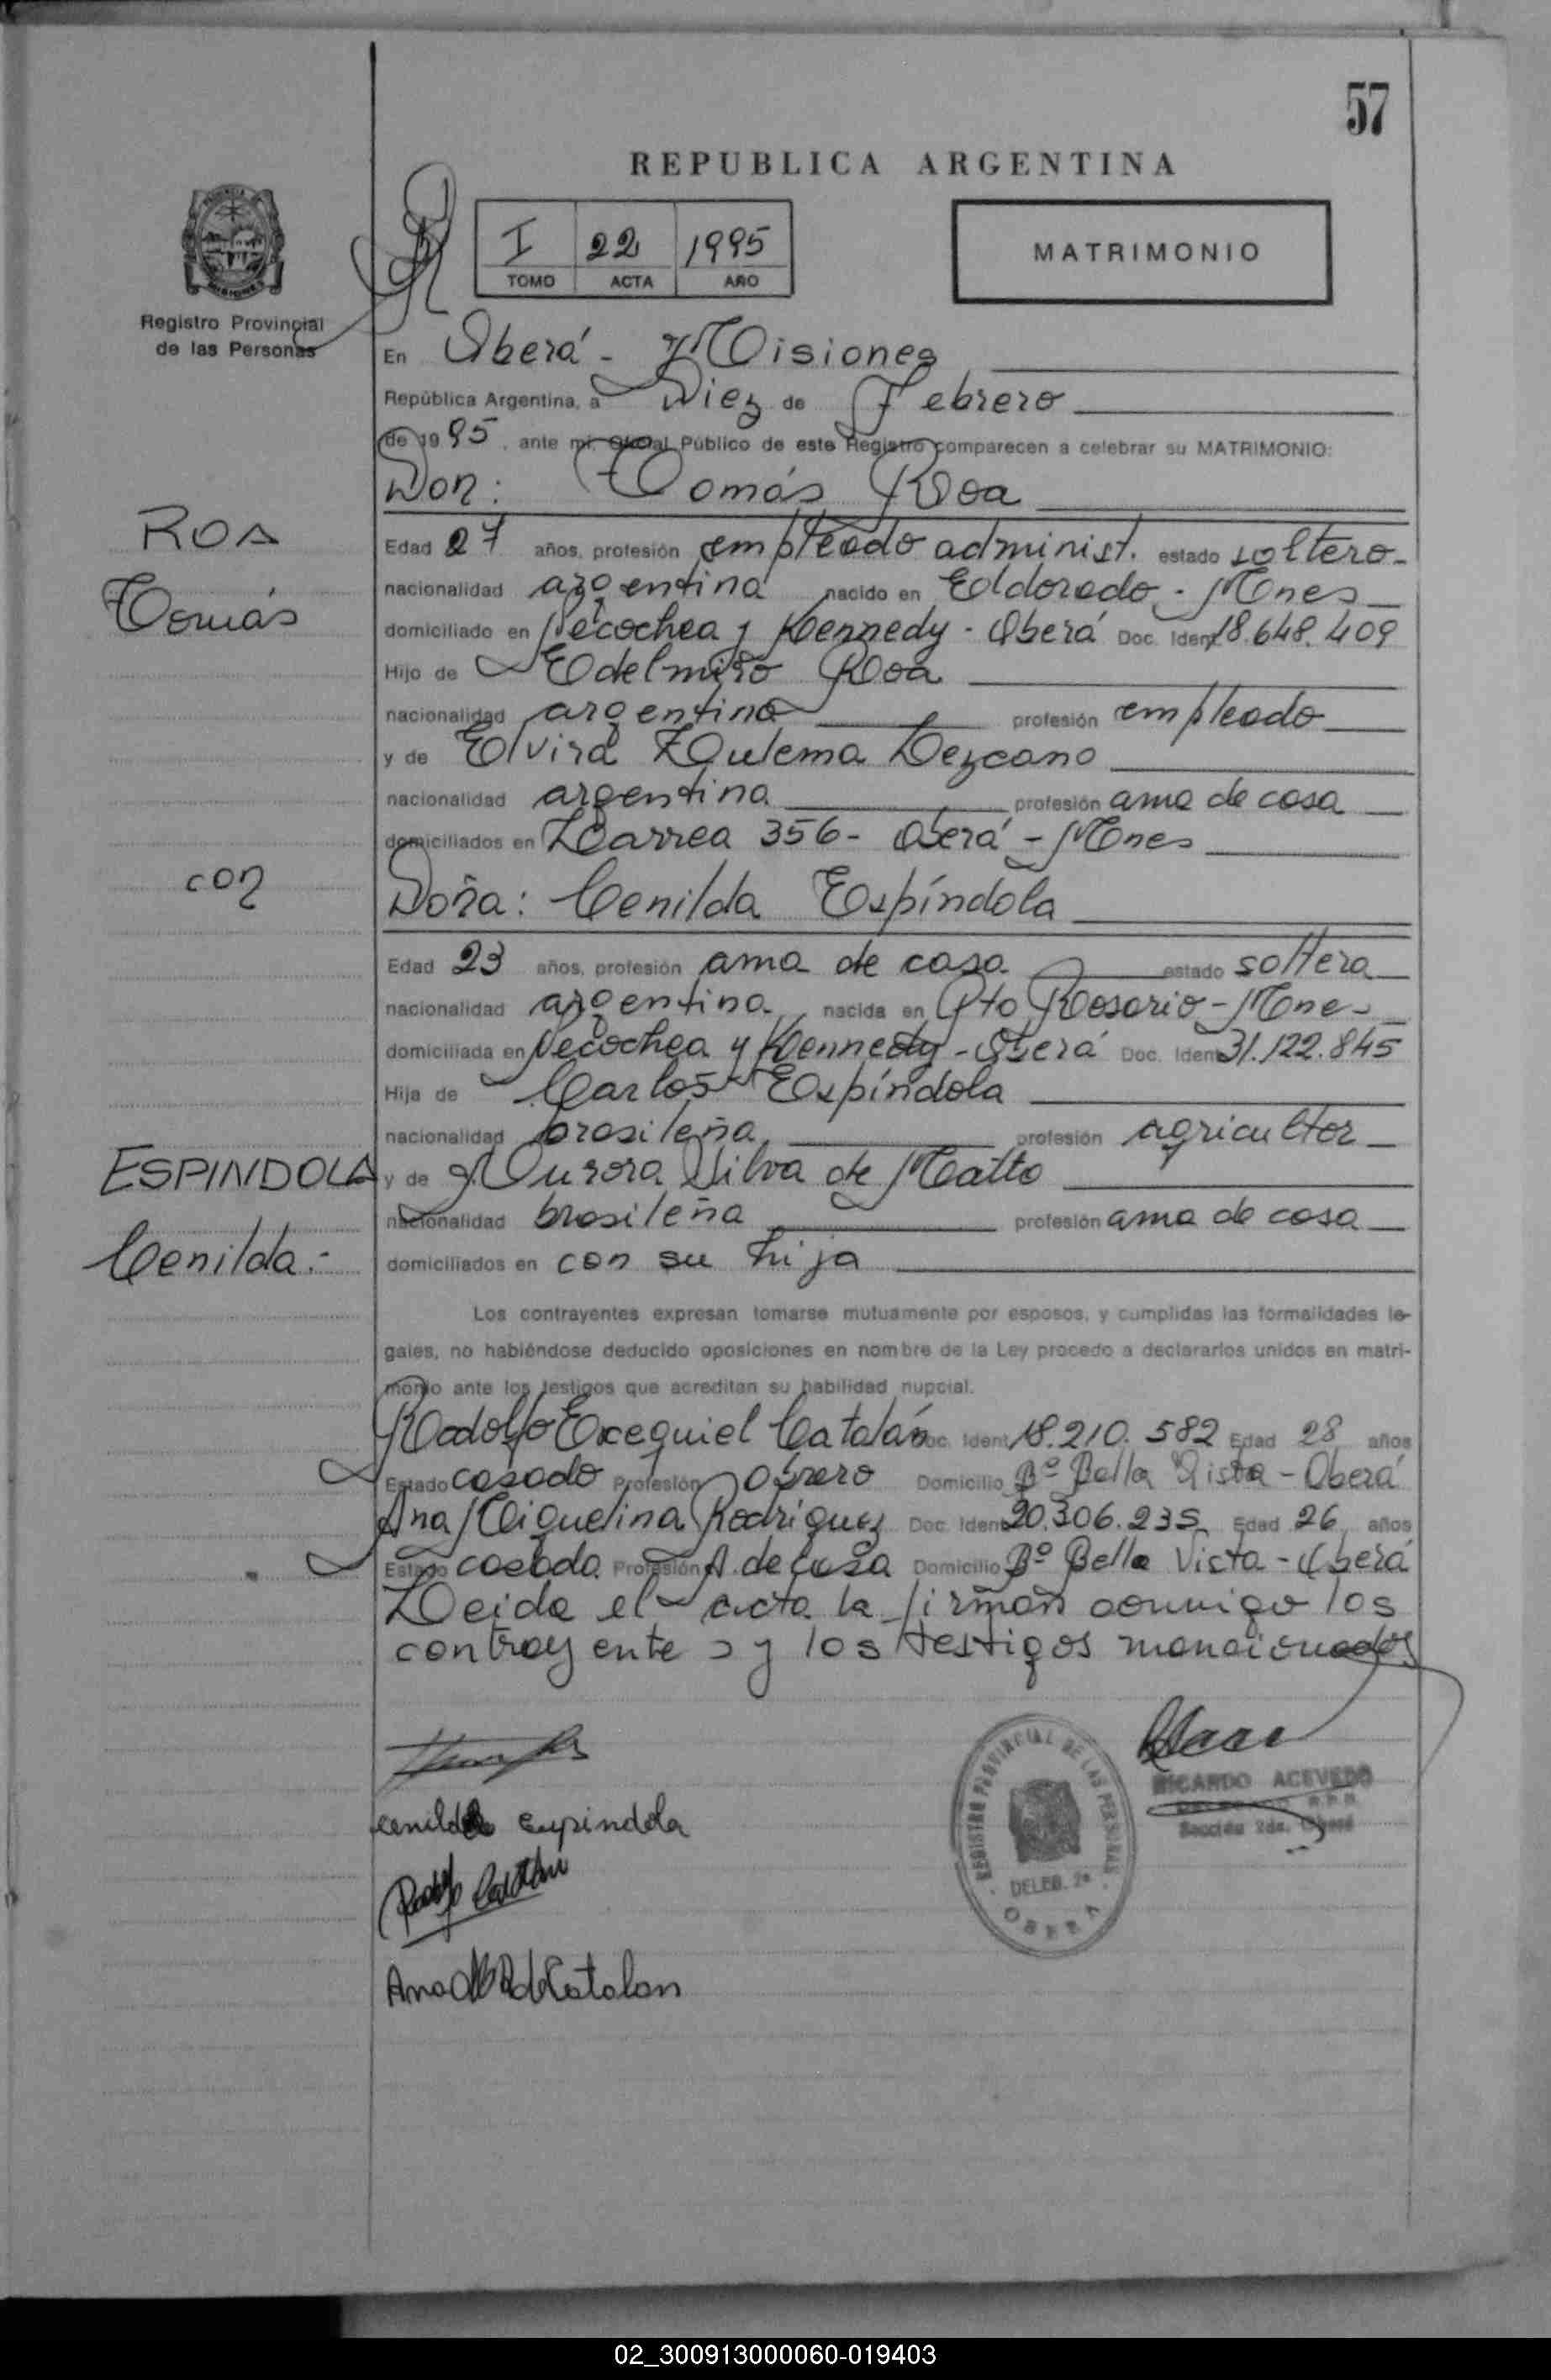 57
REPUBLICA ARGENTINA
I 22 1995
TOMO ACTA AÑO
MATRIMONIO
Registro Provincial
de las Personas
En Oberá - Misiones
República Argentina, a Diez de Febrero
de 1995, ante mi, Oficial Público de este Registro comparecen a celebrar su MATRIMONIO:
Don: Tomás Roa
ROA
Tomás
Edad 27 años, profesión empleado administ. estado soltero-
nacionalidad argentina nacido en Eldorado - Mnes
domiciliado en Necochea y Kennedy - Oberá Doc. Ident 18.648.409
Hijo de Edelmiro Roa
nacionalidad argentina profesión empleado
y de Elvira Zulema Lezcano
nacionalidad argentina profesión ama de casa
domiciliados en Larrea 356 - Oberá - Mnes
con
Doña: Cenilda Espíndola
Edad 23 años, profesión ama de casa estado soltera
nacionalidad argentina nacida en Pto Rosario - Mnes
domiciliada en Necochea y Kennedy - Oberá Doc. Ident 31.122.845
Hija de Carlos Espíndola
nacionalidad brasileña profesión agricultor
ESPINDOLA
y de Aurora Silva de Matto
nacionalidad brasileña profesión ama de casa
Cenilda.-
domiciliados en con su hija
Los contrayentes expresan tomarse mutuamente por esposos, y cumplidas las formalidades le-
gales, no habiéndose deducido oposiciones en nombre de la Ley procedo a declararlos unidos en matri-
monio ante los testigos que acreditan su habilidad nupcial.
Rodolfo Exequiel Catalán Doc. Ident 18.210.582 Edad 28 años
Estado casado Profesión Obrero Domicilio Bº Bella Vista - Oberá
Ana Miguelina Rodriguez Doc. Ident 20.306.235 Edad 26 años
Estado casada Profesión A. de casa Domicilio Bº Bella Vista - Oberá
Leida el acta la firman conmigo los
contrayentes y los testigos mencionados
cenilda espindola
Rodolfo Catalan
Ana M R de Catalan
REGISTRO PROVINCIAL DE LAS PERSONAS
DELEG. 2ª
OBERA
RICARDO ACEVEDO
DELEGADO R.P.P.
Sección 2da. Oberá
02_300913000060-019403